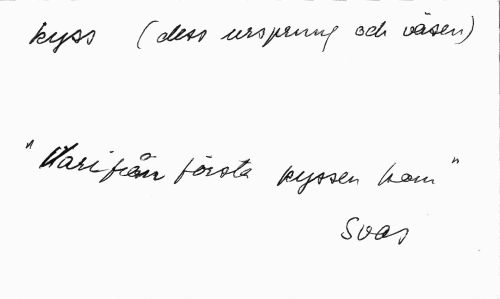 kyss (dess ursprung och väsen)
"Varifrån första kyssen kom"
Svas